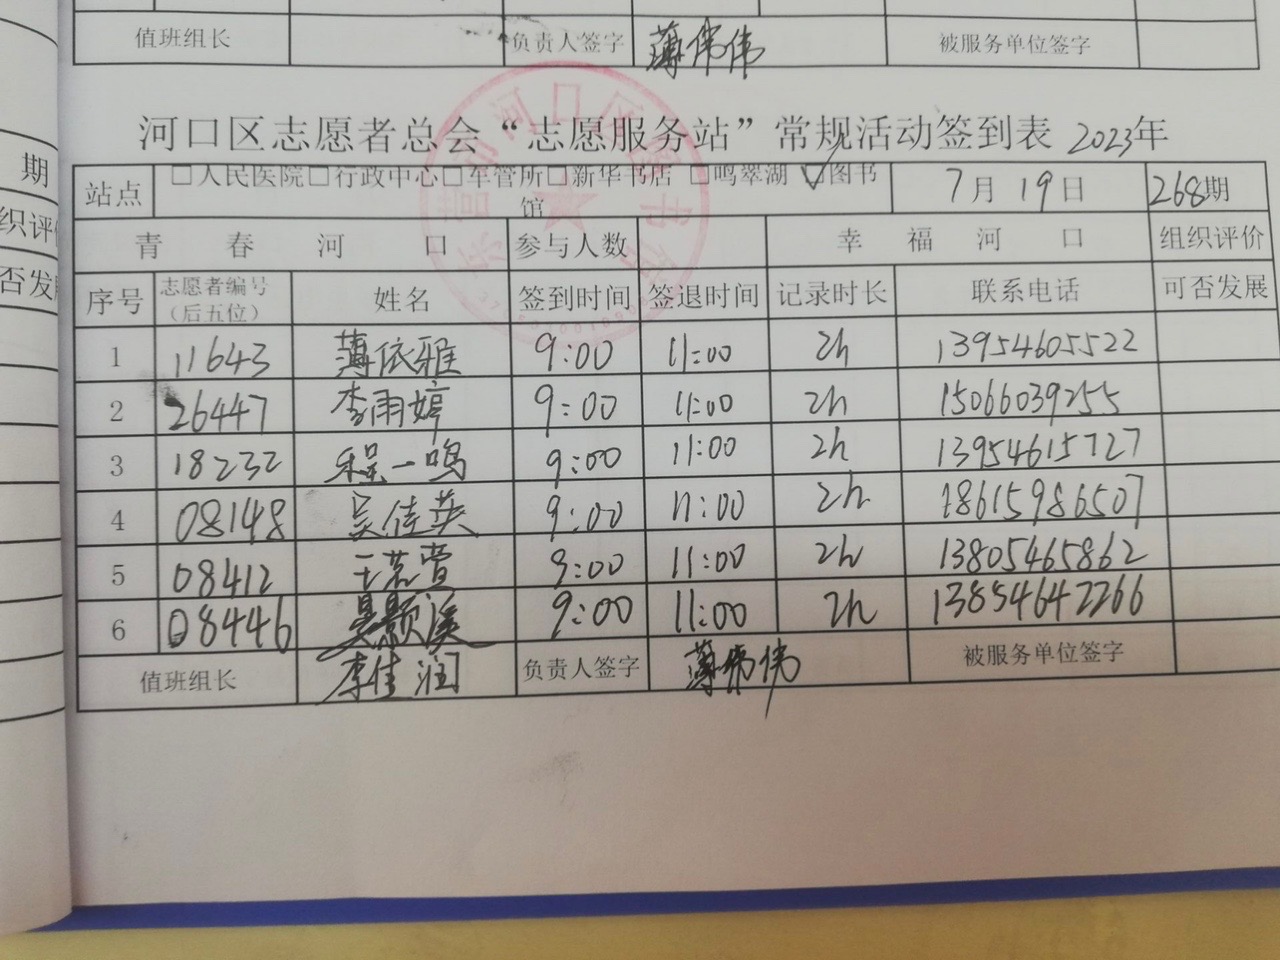 值班组长 负责人签字 薄伟伟 被服务单位签字
河口区志愿者总会“志愿服务站”常规活动签到表 2023年
期
站点 □人民医院□行政中心□车管所□新华书店 □鸣翠湖 ☑图书馆 7月19日 268期
织评
青春河口 参与人数 幸福河口 组织评价
否发
序号 志愿者编号（后五位） 姓名 签到时间 签退时间 记录时长 联系电话 可否发展
1 11643 薄依雅 9:00 11:00 2h 13954605522
2 26447 李雨婷 9:00 11:00 2h 15066039255
3 18232 程一鸣 9:00 11:00 2h 13954615727
4 08148 吴佳英 9:00 11:00 2h 18615986507
5 08412 王若萱 9:00 11:00 2h 13805465862
6 08446 9:00 11:00 2h 13854642266
值班组长 李佳润 负责人签字 薄伟伟 被服务单位签字